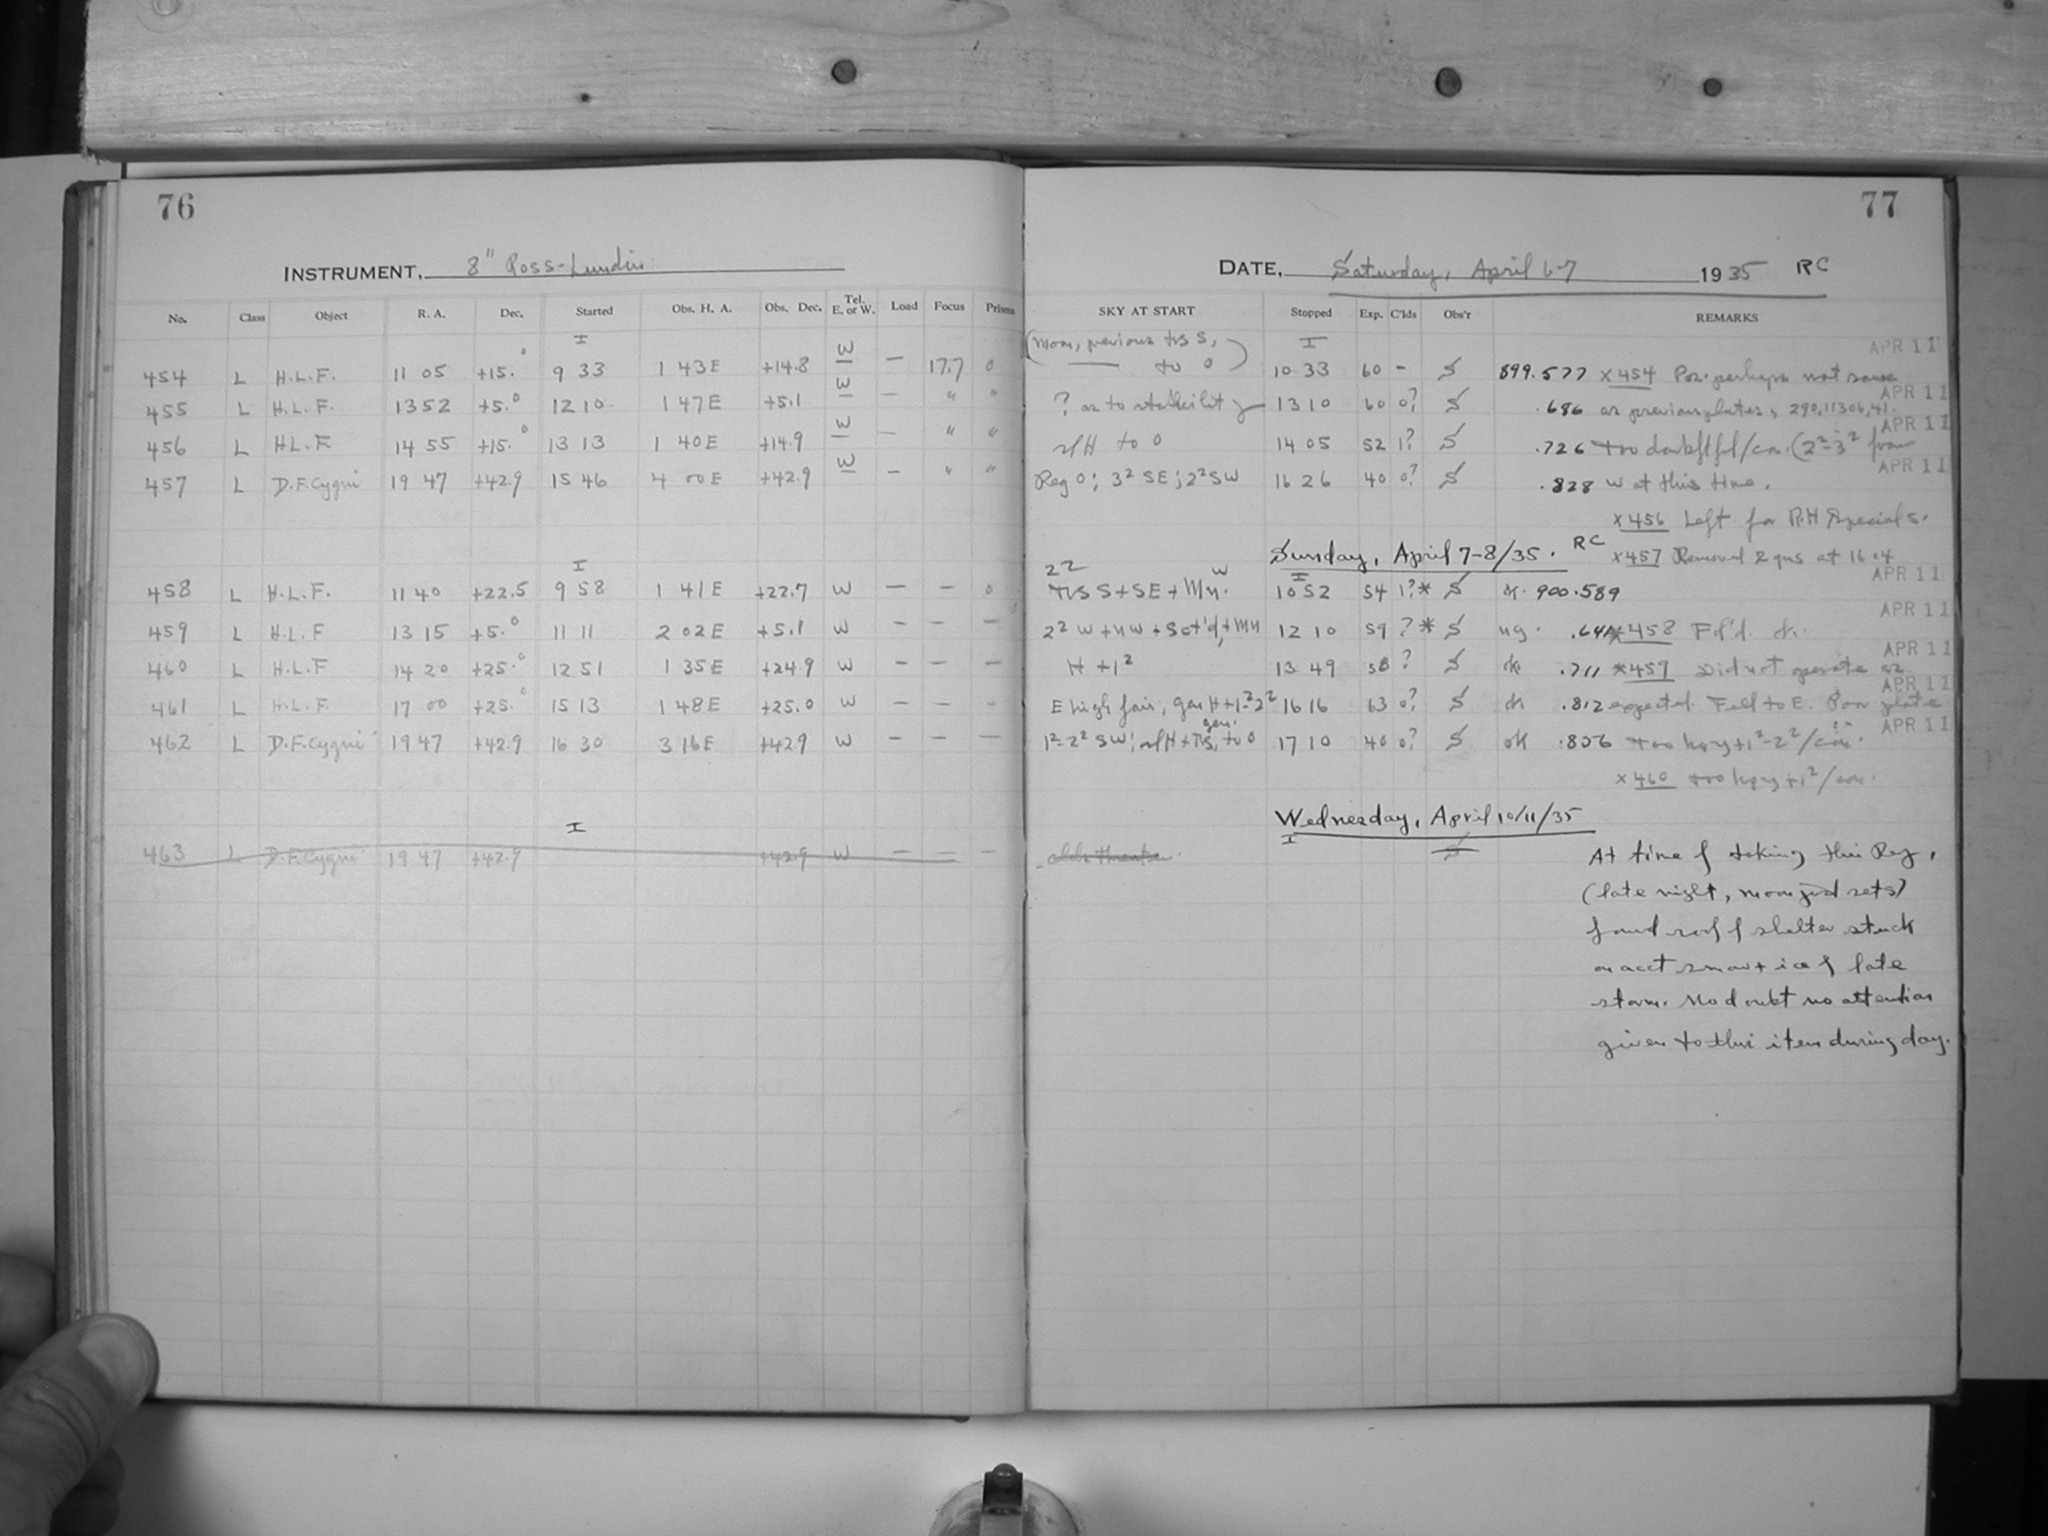 76
INSTRUMENT, 8" Ross-Lundin
No. Class Object R. A. Dec. Started Obs. H. A. Obs. Dec. Tel. E. or W. Load Focus Prisms
I
454 L H.L.F. 11 05 +15.° 9 33 1 43E +14.8 W — 17.7 0
455 L H.L.F. 13 52 +5.° 12 10 1 47E +5.1 W — " "
456 L H.L.F. 14 55 +15.° 13 13 1 40E +14.9 W — " "
457 L D.F.Cygni 19 47 +42.9 15 46 4 00E +42.9 W — " "
I
458 L H.L.F. 11 40 +22.5 9 58 1 41E +22.7 W — — 0
459 L H.L.F 13 15 +5.° 11 11 2 02E +5.1 W — — —
460 L H.L.F 14 20 +25.° 12 51 1 35E +24.9 W — — —
461 L H.L.F. 17 00 +25.° 15 13 1 48E +25.0 W — — —
462 L D.F.Cygni 19 47 +42.9 16 30 3 16E +42.9 W — — —
I
463 L D.F.Cygni 19 47 +42.9 +42.9 W — — —
77
DATE, Saturday, April 6-7 1935 RC
SKY AT START Stopped Exp. C'lds Obs'r REMARKS
(Moon, previous S, I APR 11
— to 0) 10 33 60 - S 899.577 x454 Pos. perhaps not same
APR 11
? as to stability 13 10 60 0? S .686 as previous plates, 290,11306,41.
APR 11
H to 0 14 05 52 1? S .726 too doubtful/con. (2²-3² from
APR 11
Reg 0; 3² SE; 2² SW 16 26 40 0? S .828 W at this time.
x456 Left for R.H Specials.
Sunday, April 7-8/35. RC x457 Removed 2 qns at 16 04
22 W I APR 11
S+SE+Mn. 10 52 54 1?* S ok. 900.589
APR 11
2² W+NW+Sct'd,+Mn 12 10 59 ?* S ng. .641 *458 F'd'd. ok.
APR 11
H +1² 13 49 58 ? S ok .711 *459 Did not operate as
APR 11
E high fair, gen H+1²-2² 16 16 63 0? S ok .812 expected. Fell to E. Poor plate
gen. APR 11
1²-2² SW; H+ to 0 17 10 40 0? S ok .856 too hazy+1²-2²/con.
x460 too hazy+1²/con.
Wednesday, April 10/11/35
I
S At time of taking this Reg,
(late night, moon just sets)
found roof of shelter stuck
on acct snow + ice of late
storm. No doubt no attention
given to this item during day.